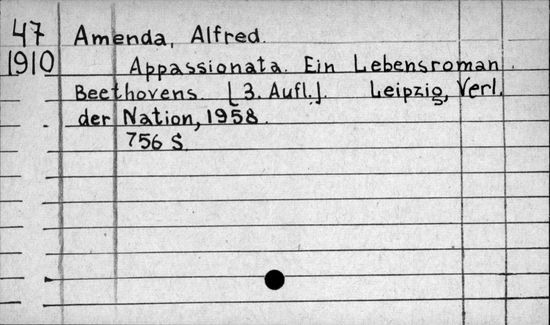 47 Amenda, Alfred.
1910 Appassionata. Ein Lebensroman
Beethovens. [3. Aufl.]. Leipzig, Verl.
der Nation, 1958.
756 S.